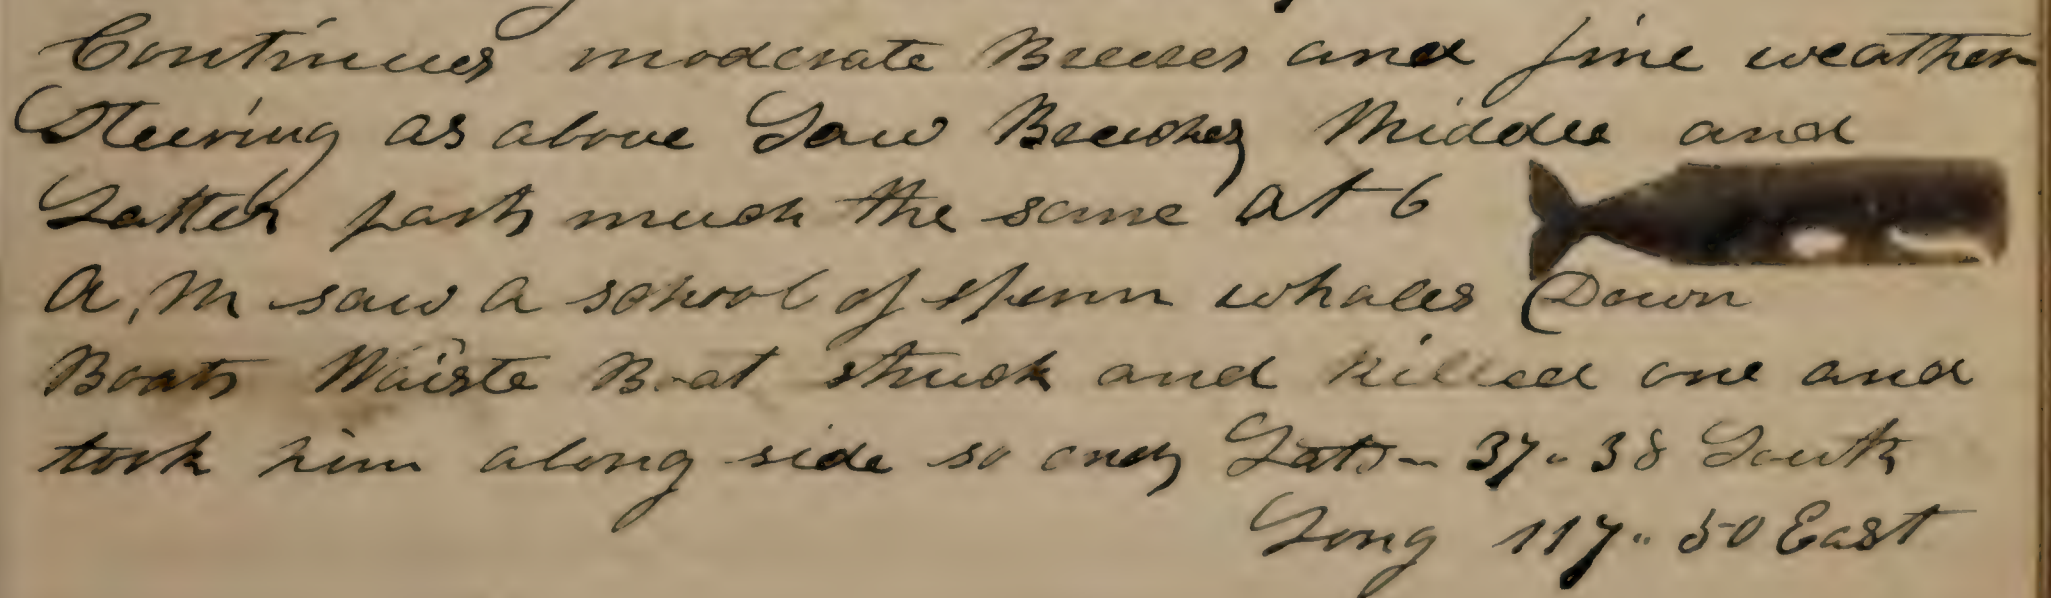 Continues moderate Breezes and fine weather
Steering as above Saw Beeches Middle and
Latter parts much the same at 6
A, M saw a school of sperm whales Down
Boats Waiste Boat struck and killed one and
took him along side so ends Lats - 37 " 38 South
Long 117 " 50 East